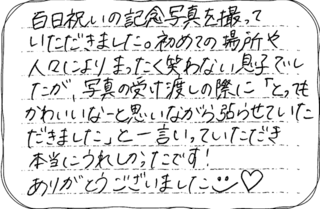 百日祝いの記念写真を撮って
いただきました。初めての場所や
人々によりまったく笑わない息子でし
たが、写真の受け渡しの際に「とっても
かわいいなーと思いながら張らせていた
だきました」と一言いっていただき
本当にうれしかったです!
ありがとうございました